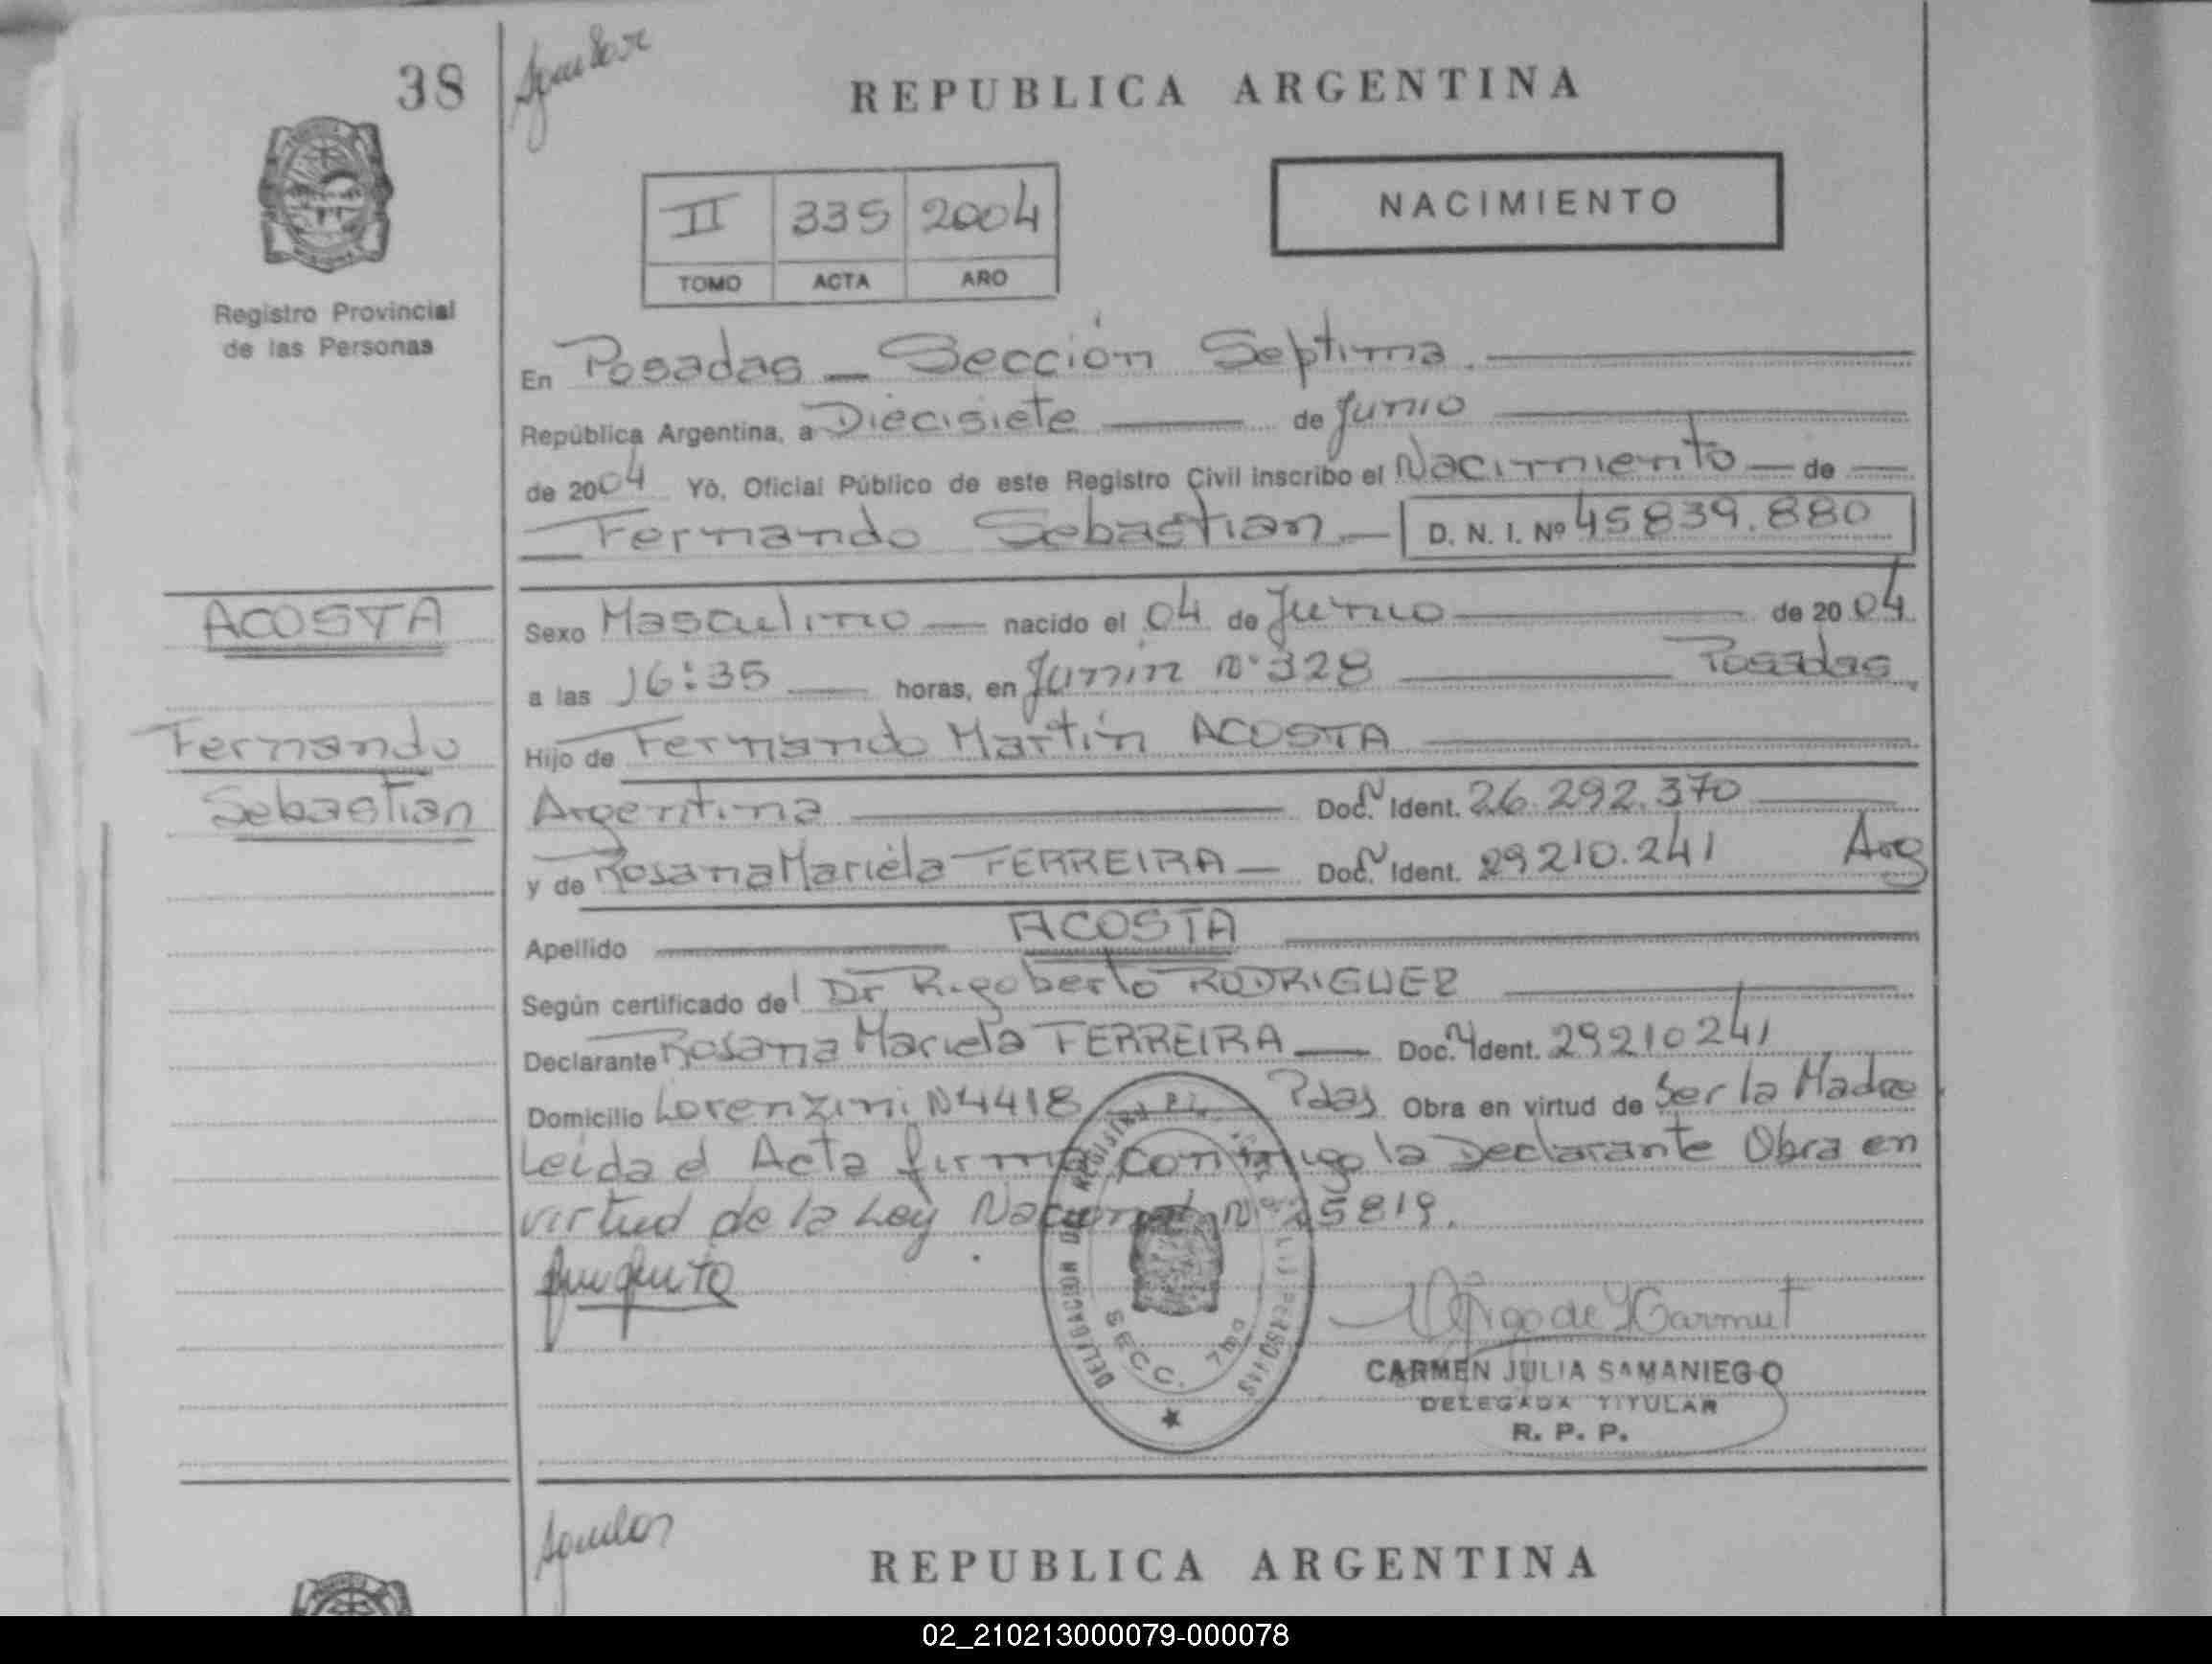 38
REPUBLICA ARGENTINA
II 335 2004
TOMO ACTA AÑO
NACIMIENTO
Registro Provincial
de las Personas
En Posadas - Sección Septima.
República Argentina, a Diecisiete de Junio
de 2004 Yo, Oficial Público de este Registro Civil inscribo el Nacimiento de
Fernando Sebastian D. N. I. Nº 45839.880
ACOSTA
Fernando
Sebastian
Sexo Masculino nacido el 04 de Junio de 2004
a las 16:35 horas, en Junin nº 328 Posadas
Hijo de Fernando Martín ACOSTA
Argentina Doc. N Ident. 26.292.370
y de Rosana Mariela FERREIRA Doc. N Ident. 29210.241 Arg
Apellido ACOSTA
Según certificado del Dr Rigoberto RODRIGUEZ
Declarante Rosana Mariela FERREIRA Doc. N Ident. 29210241
Domicilio Lorenzini N 4418 Pdas Obra en virtud de Ser la Madre
Leida el Acta firma conmigo la Declarante Obra en
virtud de la Ley Nacional Nº 25819.
SECC. 7ma
CARMEN JULIA SAMANIEGO
DELEGADA TITULAR
R. P. P.
REPUBLICA ARGENTINA
02_210213000079-000078